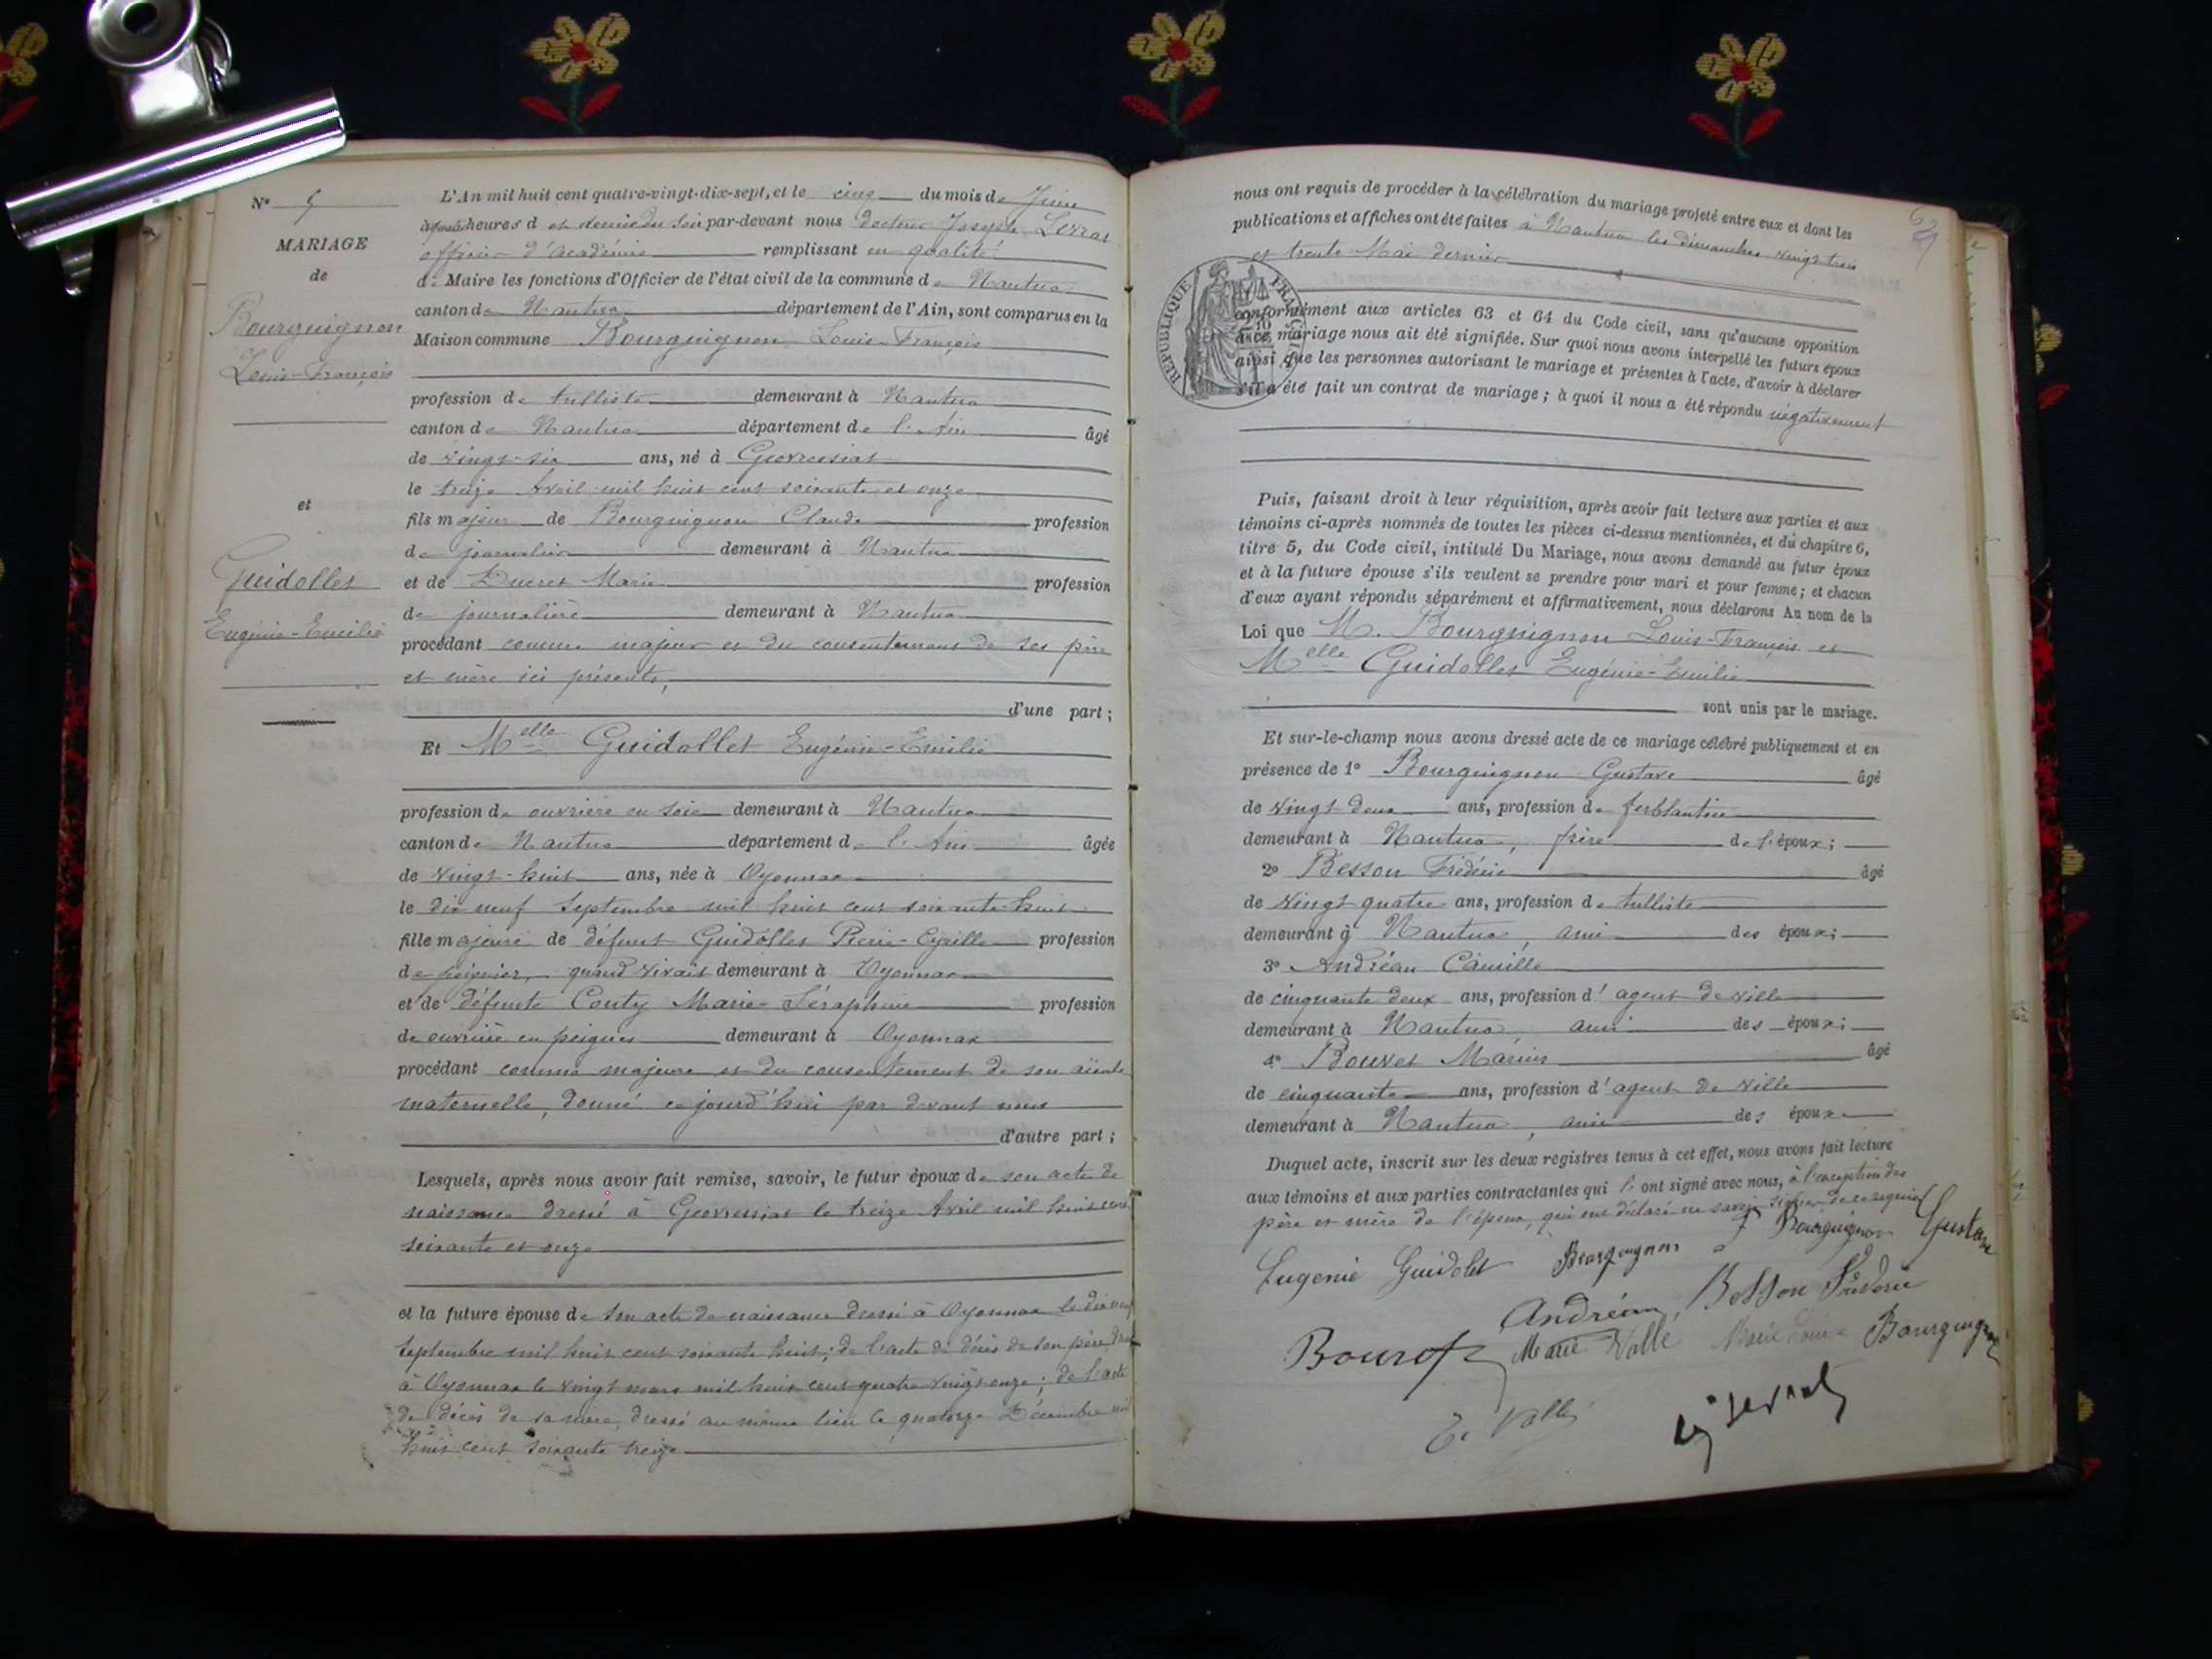 N° 5
MARIAGE
de
Bourguignon
Louis-François
et
Guidollet
Eugénie-Emilie
L'An mil huit cent quatre-vingt-dix-sept, et le cinq du mois de Juin
à quatre heures d et demie du soir par-devant nous docteur Joseph Levrat
officier d'Académie remplissant en qualité
de Maire les fonctions d'Officier de l'état civil de la commune de Nantua
canton de Nantua département de l'Ain, sont comparus en la
Maison commune Bourguignon Louis-François
profession de tulliste demeurant à Nantua
canton de Nantua département de l'Ain âgé
de vingt-six ans, né à Geovressiat
le treize Avril mil huit cent soixante et onze
fils majeur de Bourguignon Claude profession
de journalier demeurant à Nantua
et de Ducret Marie profession
de journalière demeurant à Nantua
procédant comme majeur et du consentement de ses père
et mère ici présents,
d'une part ;
Et Melle Guidollet Eugénie-Emilie
profession de ouvrière en soie demeurant à Nantua
canton de Nantua département de l'Ain âgée
de vingt-huit ans, née à Oyonnax
le dix neuf Septembre mil huit cent soixante-huit
fille majeure de défunt Guidollet Pierre-Cyrille profession
de peignier, quand vivait demeurant à Oyonnax
et de défunte Conty Marie-Séraphine profession
de ouvrière en peignes demeurant à Oyonnax
procédant comme majeure et du consentement de son aïeule
maternelle, donné ce jourd'hui par devant nous
d'autre part ;
Lesquels, après nous avoir fait remise, savoir, le futur époux de son acte de
naissance dressé à Geovressiat le treize Avril mil huit cent
soixante et onze
et la future épouse de son acte de naissance dressé à Oyonnax le dix neuf
Septembre mil huit cent soixante huit ; de l'acte de décès de son père,
à Oyonnax le vingt mars mil huit cent quatre vingt onze ; de l'acte
de décès de sa mère, dressé au même lieu le quatorze Décembre mil
huit cent soixante treize
nous ont requis de procéder à la célébration du mariage projeté entre eux et dont les
publications et affiches ont été faites à Nantua les dimanches vingt trois
et trente Mai dernier
RÉPUBLIQUE FRANÇAISE
conformément aux articles 63 et 64 du Code civil, sans qu'aucune opposition
à ce mariage nous ait été signifiée. Sur quoi nous avons interpellé les futurs époux
ainsi que les personnes autorisant le mariage et présentes à l'acte, d'avoir à déclarer
s'il a été fait un contrat de mariage ; à quoi il nous a été répondu négativement
Puis, faisant droit à leur réquisition, après avoir fait lecture aux parties et aux
témoins ci-après nommés de toutes les pièces ci-dessus mentionnées, et du chapitre 6,
titre 5, du Code civil, intitulé Du Mariage, nous avons demandé au futur époux
et à la future épouse s'ils veulent se prendre pour mari et pour femme ; et chacun
d'eux ayant répondu séparément et affirmativement, nous déclarons Au nom de la
Loi que M. Bourguignon Louis-François et
Melle Guidollet Eugénie-Emilie
sont unis par le mariage.
Et sur-le-champ nous avons dressé acte de ce mariage célébré publiquement et en
présence de 1° Bourguignon Gustave âgé
de vingt deux ans, profession de ferblantier
demeurant à Nantua, frère de l'époux ;
2° Besson Frédéric âgé
de vingt quatre ans, profession de tulliste
demeurant à Nantua, ami des époux ;
3° Andréan Camille
de cinquante deux ans, profession d'agent de ville
demeurant à Nantua, ami des époux ;
4° Bouvet Marius âgé
de cinquante ans, profession d'agent de ville
demeurant à Nantua, ami des époux
Duquel acte, inscrit sur les deux registres tenus à cet effet, nous avons fait lecture
aux témoins et aux parties contractantes qui l'ont signé avec nous, à l'exception des
père et mère de l'époux, qui ont déclaré ne savoir signer de ce requis
Eugenie Guidolet Bourguignon Bourguignon Gustave
Andréan Besson Frédéric
Bouvet Marie Vallé Marie Bourguignon